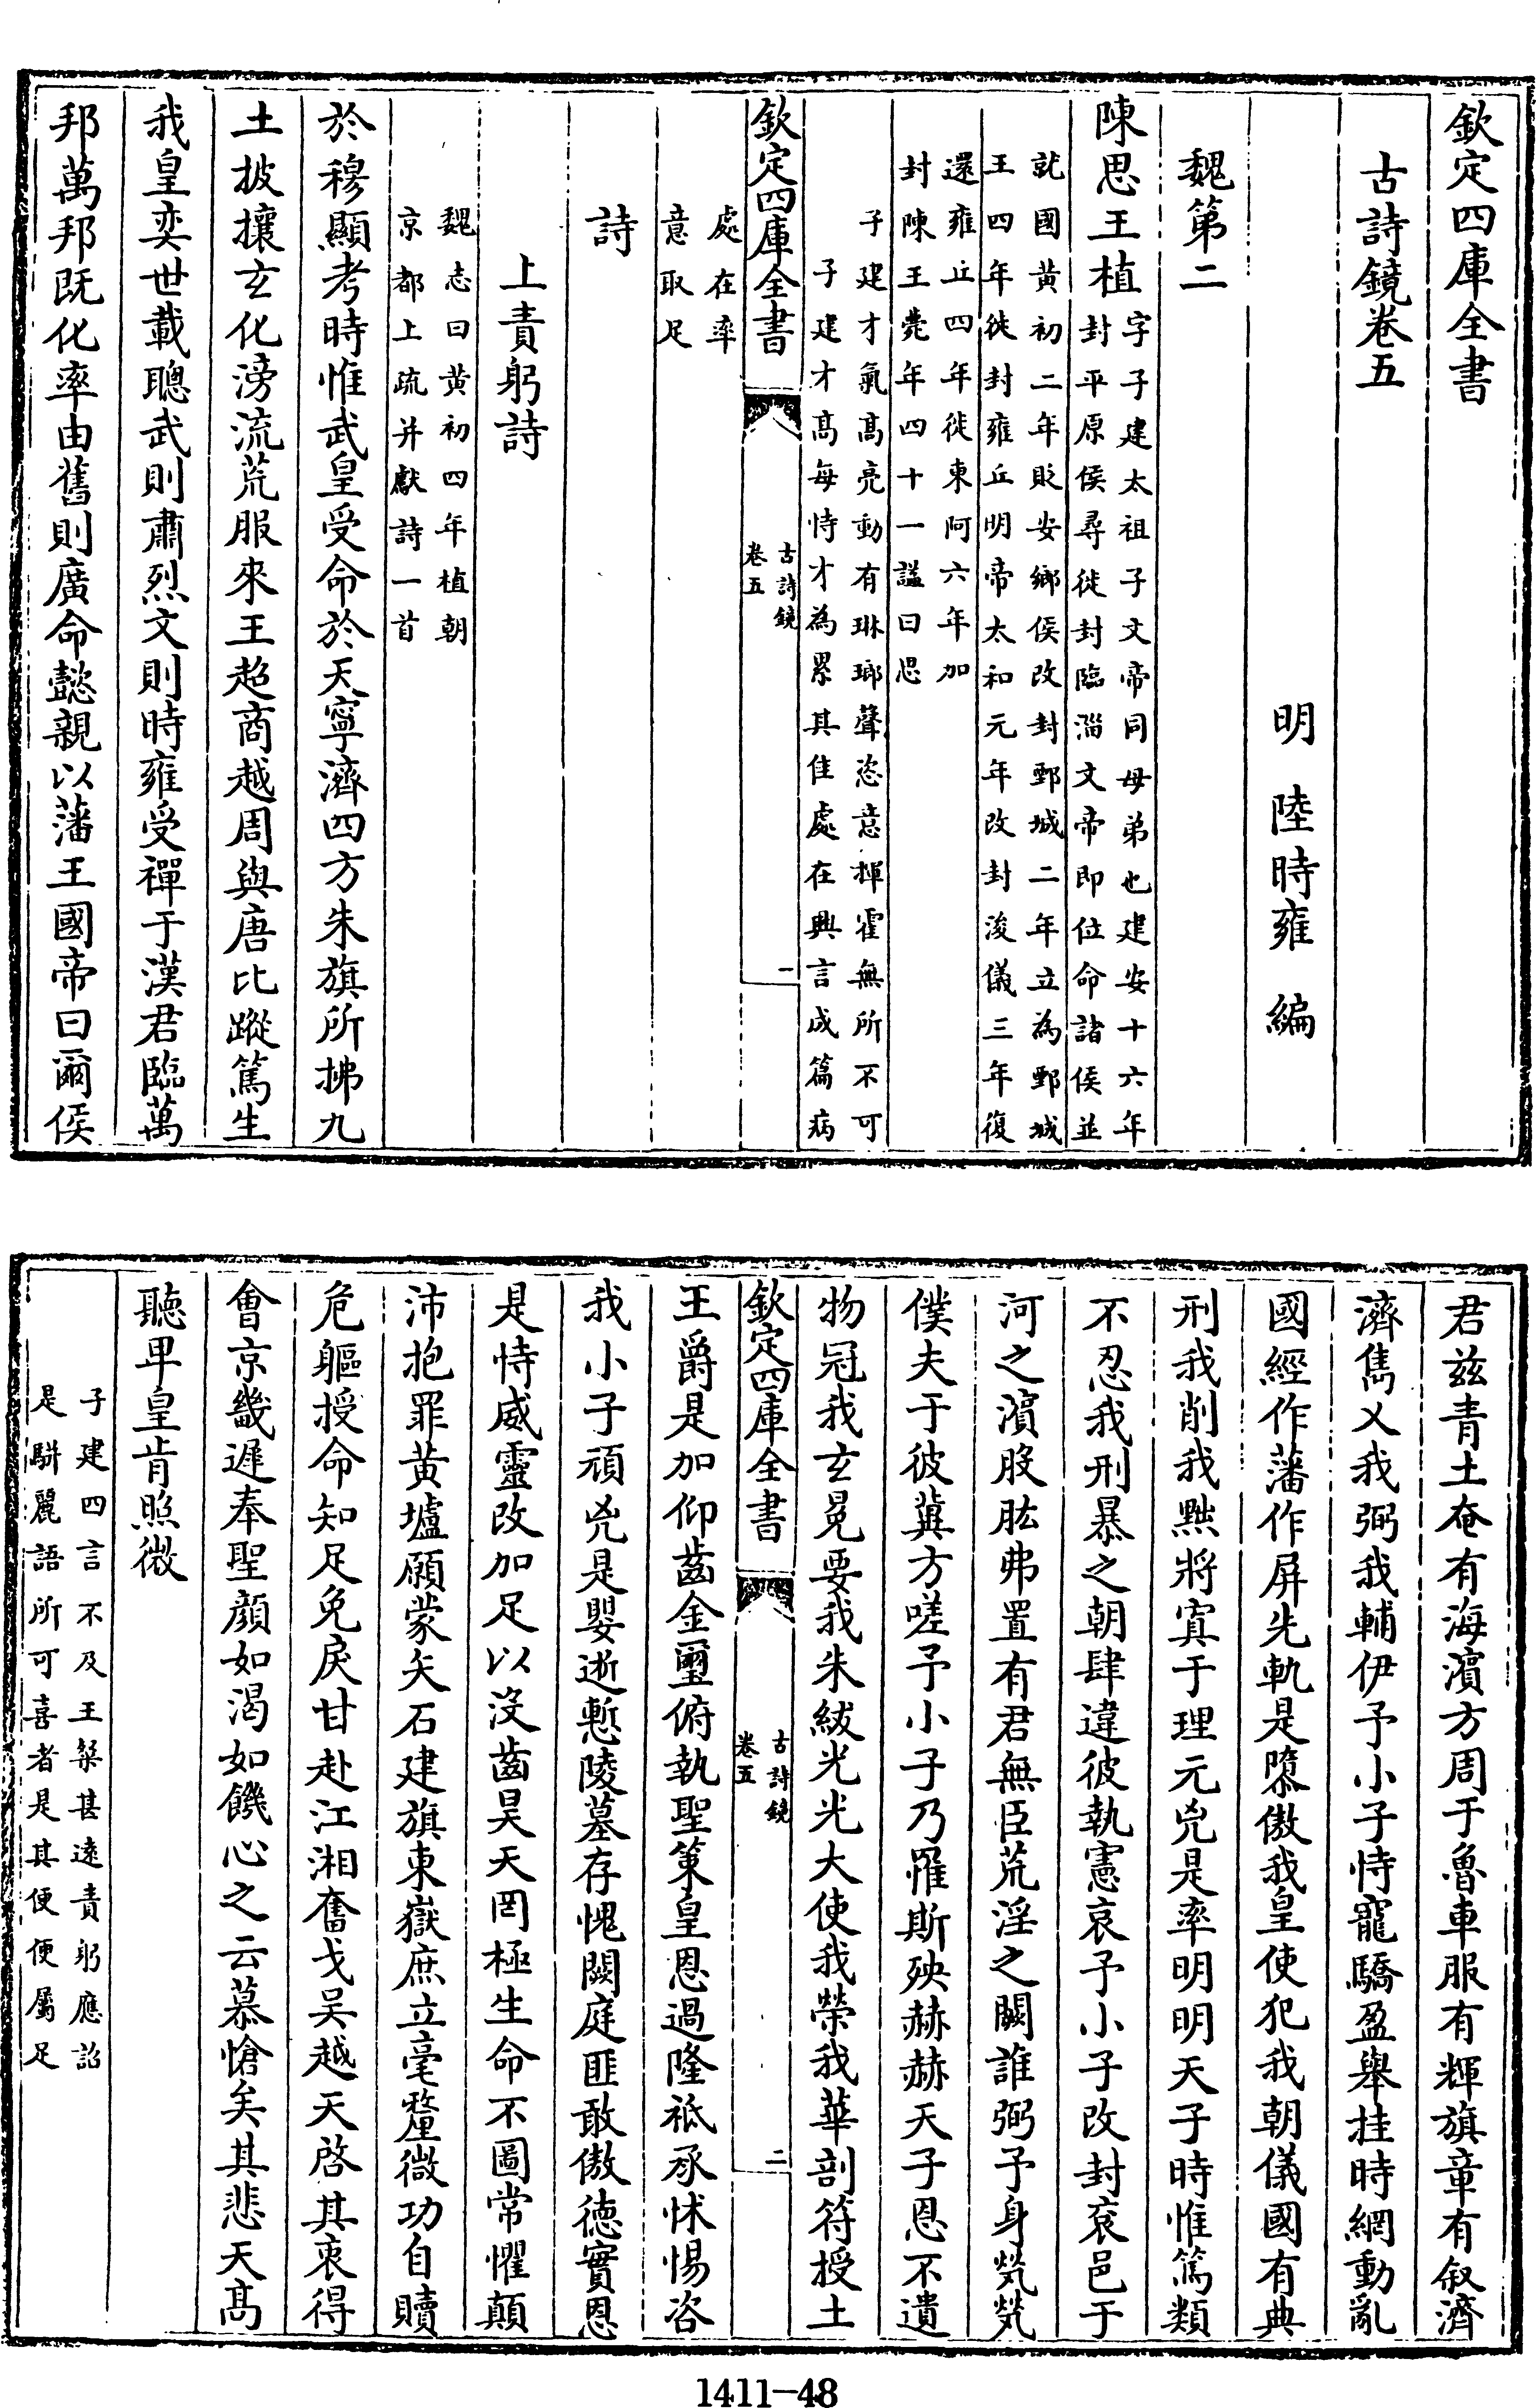 欽定四庫全書
古詩鏡卷五
明 陸時雍 編
魏第二
陳思王植字子建太祖子文帝同母弟也建安十六年
封平原侯尋徙封臨淄文帝即位命諸侯並
就國黄初二年貶安鄉侯改封鄄城二年立為鄄城
王四年徙封雍丘明帝太和元年改封浚儀三年復
還雍丘四年徙東阿六年加
封陳王薨年四十一謚曰思
子建才氣髙亮動有琳瑯聲恣意揮霍無所不可
子建才髙每恃才為累其佳處在興言成篇病
欽定四庫全書
古詩鏡
卷五
一
處在率
意取足
詩
上責躬詩
魏志曰黄初四年植朝
京都上疏并獻詩一首
於穆顯考時惟武皇受命於天寧濟四方朱旗所拂九
土披攘玄化滂流荒服來王超商越周與唐比蹤篤生
我皇奕世載聰武則肅烈文則時雍受禪于漢君臨萬
邦萬邦既化率由舊則廣命懿親以藩王國帝曰爾侯
君兹青土奄有海濵方周于魯車服有輝旗章有叙濟
濟雋乂我弼我輔伊予小子恃寵驕盈舉挂時網動亂
國經作藩作屏先軌是隳傲我皇使犯我朝儀國有典
刑我削我黜將寘于理元兇是率明明天子時惟篤類
不忍我刑暴之朝肆違彼執憲哀予小子改封兖邑于
河之濵股肱弗置有君無臣荒淫之闕誰弼予身煢煢
僕夫于彼冀方嗟予小子乃罹斯殃赫赫天子恩不遺
物冠我玄冕要我朱紱光光大使我榮我華剖符授土
欽定四庫全書
古詩鏡
卷五
二
王爵是加仰齒金璽俯執聖策皇恩過隆祗承怵惕咨
我小子頑兇是嬰逝慙陵墓存愧闕庭匪敢傲德實恩
是恃威靈改加足以沒齒昊天罔極生命不圖常懼顛
沛抱罪黄壚願蒙矢石建旗東嶽庶立毫釐微功自贖
危軀授命知足免戾甘赴江湘奮戈吴越天啓其衷得
會京畿遲奉聖顔如渴如饑心之云慕愴矣其悲天髙
聽卑皇肯照微
子建四言不及王粲甚逺責躬應詔
是駢麗語所可喜者是其便便屬足
1411—48